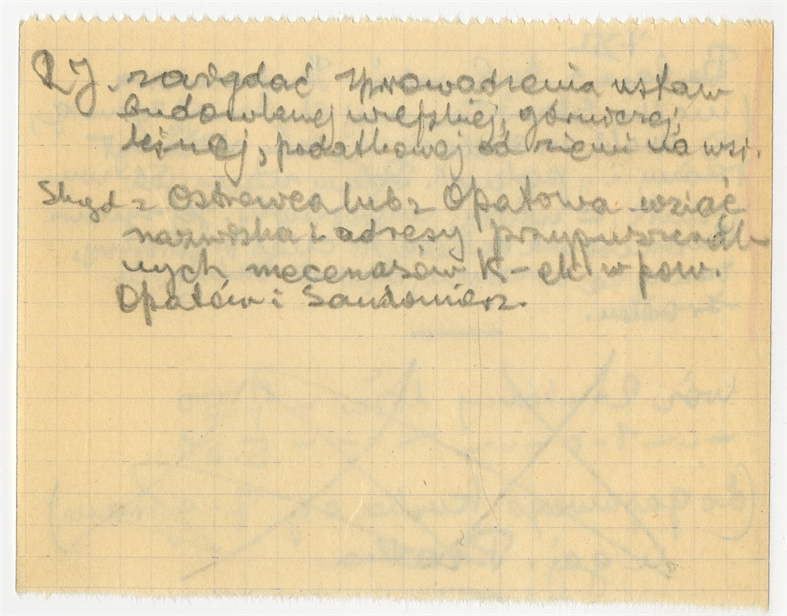 RJ. zażądać sprowadzenia ustaw
budowlanej wiejskiej, górniczej,
leśnej, podatkowej od ziemi na wsi.
Skąd z Ostrowca lub z Opatowa wziąć
nazwiska i adresy przypuszczal-
nych mecenasów K-ek w pow.
Opatów i Sandomierz.